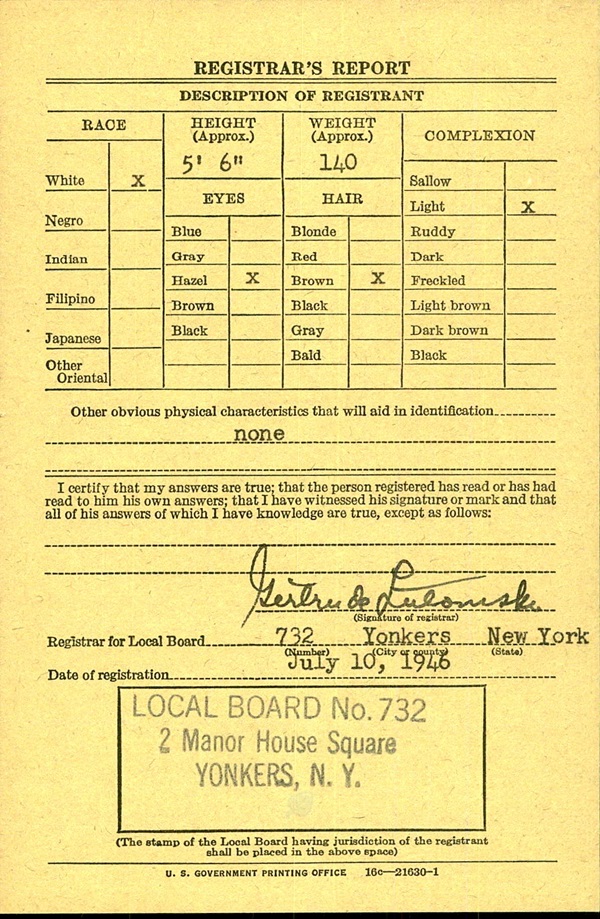 REGISTRAR'S REPORT
DESCRIPTION OF REGISTRANT
RACE
White X
Negro
Indian
Filipino
Japanese
Other
Oriental
HEIGHT
(Approx.)
5' 6"
WEIGHT
(Approx.)
140
EYES
Blue
Gray
Hazel X
Brown
Black
HAIR
Blonde
Red
Brown X
Black
Gray
Bald
COMPLEXION
Sallow
Light X
Ruddy
Dark
Freckled
Light brown
Dark brown
Black
Other obvious physical characteristics that will aid in identification
none
I certify that my answers are true; that the person registered has read or has had
read to him his own answers; that I have witnessed his signature or mark and that
all of his answers of which I have knowledge are true, except as follows:
Gertrude Lutomski
(Signature of registrar)
Registrar for Local Board 732 Yonkers New York
(Number) (City or county) (State)
July 10, 1946
Date of registration
LOCAL BOARD No. 732
2 Manor House Square
YONKERS, N. Y.
(The stamp of the Local Board having jurisdiction of the registrant
shall be placed in the above space)
U. S. GOVERNMENT PRINTING OFFICE 16c—21630-1